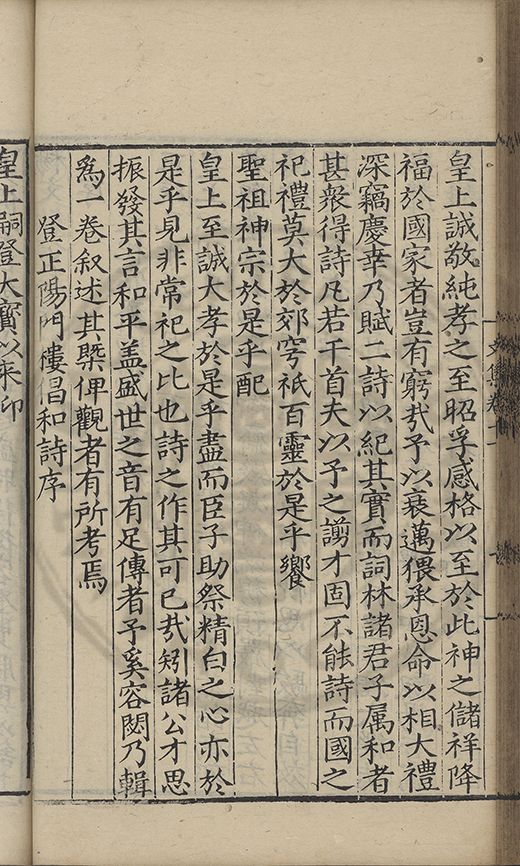 皇上誠敬純孝之至昭孚感格以至於此神之儲祥降
福於國家者豈有窮㢤予以衰邁猥承恩命以相大禮
深竊慶幸乃賦二詩以紀其實而詞林諸君子属和者
甚衆得詩凡若干首夫以予之謭才固不能詩而國之
祀禮莫大於郊穹祇百靈於是乎饗
聖祖神宗於是乎配
皇上至誠大孝於是乎盡而臣子助祭精白之心亦於
是乎見非常祀之比也詩之作其可已㢤矧諸公才思
振發其言和平盖盛世之音有足傳者予奚容閟乃輯
爲一卷叙述其槩俾觀者有所考焉
登正陽門樓倡和詩序
皇上嗣登大寳以来卬